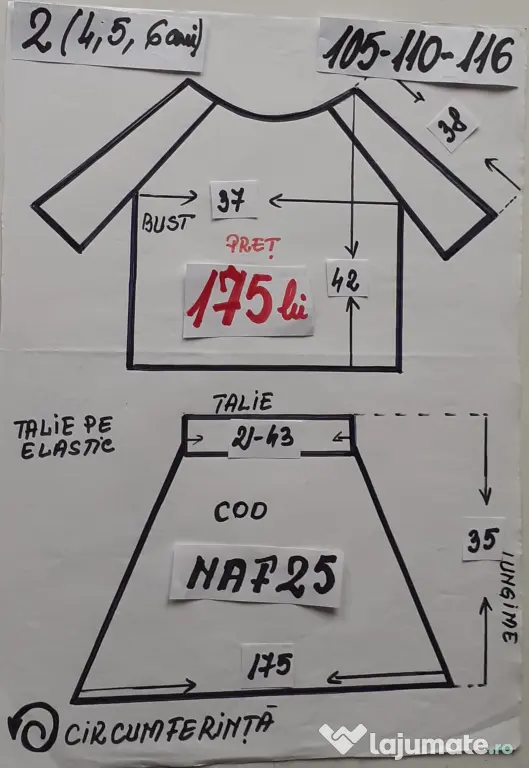 2 (4, 5, 6 ani)
105-110-116
38
37
BUST
PREȚ
175 lei
42
TALIE
TALIE PE
ELASTIC
21-43
COD
NAF25
35
LUNGIME
175
CIRCUMFERINȚĂ
lajumate.ro